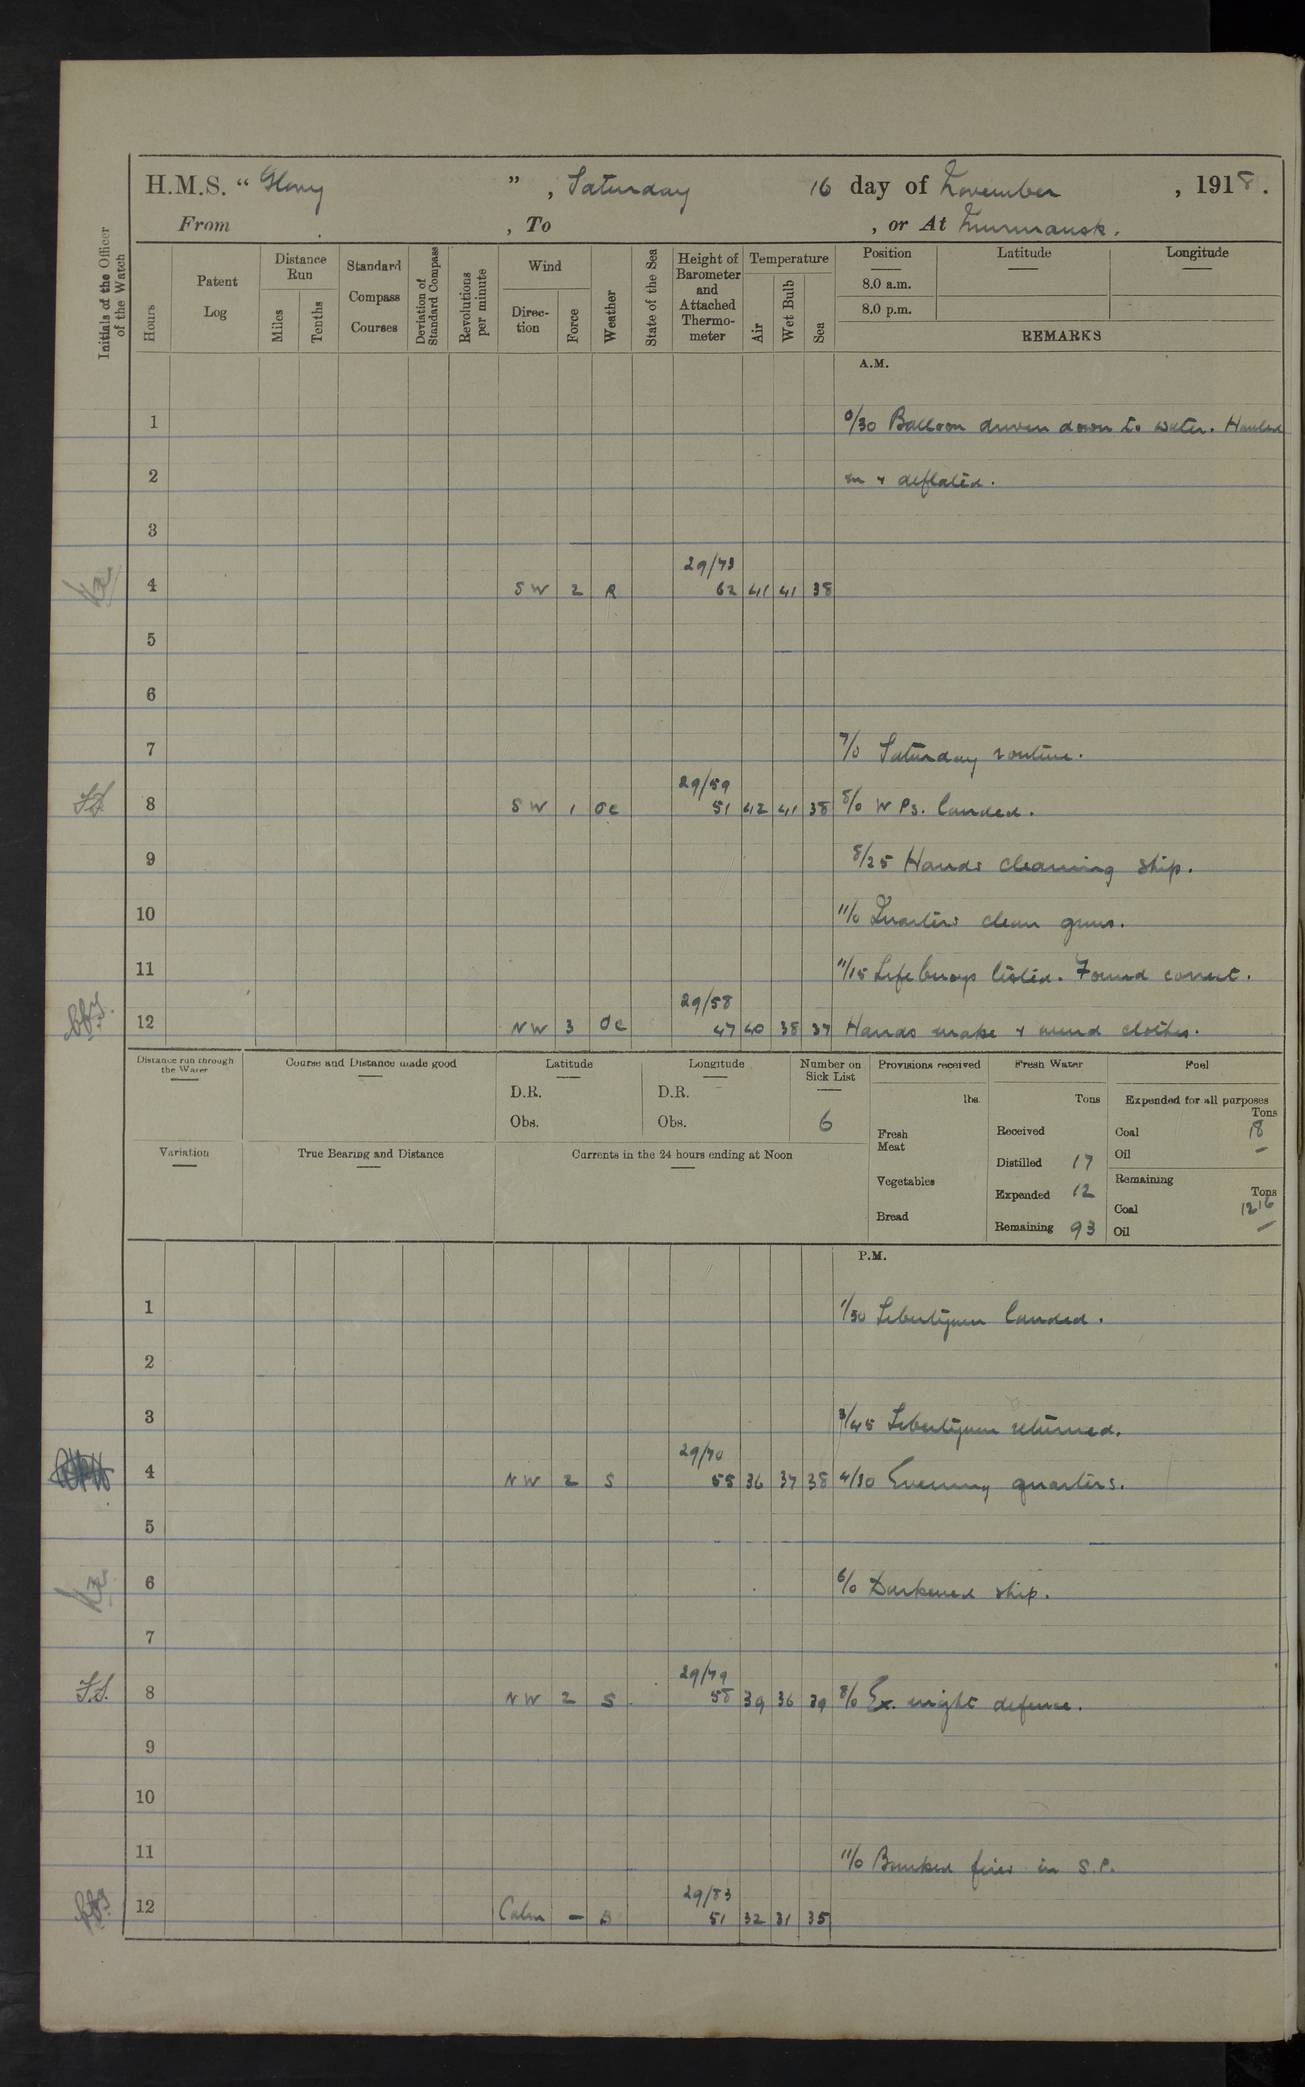 H.M.S. “ Glory ” , Saturday 16 day of November , 1918 .
From , To , or At Murmansk.
Initials of the Officer of the Watch
Hours
Patent Log
Distance Run
Miles
Tenths
Standard Compass Courses
Deviation of Standard Compass
Revolutions per minute
Wind
Direc- tion
Force
Weather
State of the Sea
Height of Barometer and Attached Thermo- meter
Temperature
Air
Wet Bulb
Sea
Position
Latitude
Longitude
8.0 a.m.
8.0 p.m.
REMARKS
A.M.
1 0/30 Balloon driven down to water. Hauled
2 in & deflated.
3
29/73
4 SW 2 R 62 41 41 38
5
6
7 7/0 Saturday routine.
29/59
8 SW 1 oc 51 42 41 38 8/0 W Ps. landed.
9 8/25 Hands cleaning ship.
10 11/0 Quarters clean guns.
11 11/15 Lifebuoys tested. Found correct.
29/58
12 NW 3 oc 47 40 38 37 Hands make & mend clothes.
Distance run through the Water
Course and Distance made good
Latitude
D.R.
Obs.
Longitude
D.R.
Obs.
Number on Sick List
6
Provisions received
lbs.
Fresh Meat
Vegetables
Bread
Fresh Water
Tons
Received
Distilled 17
Expended 12
Remaining 93
Fuel
Expended for all purposes
Tons
Coal 18
Oil –
Remaining
Tons
Coal 1216
Oil –
Variation
True Bearing and Distance
Currents in the 24 hours ending at Noon
P.M.
1 1/30 Libertymen landed.
2
3 3/45 Libertymen returned.
29/70
4 NW 2 S 55 36 37 38 4/30 Evening quarters.
5
6 6/0 Darkened ship.
7
29/79
S.S. 8 NW 2 S 58 39 36 39 8/0 Ex. night defence.
9
10
11 11/0 Banked fires in S.P.
29/83
12 Calm – B 51 32 31 35